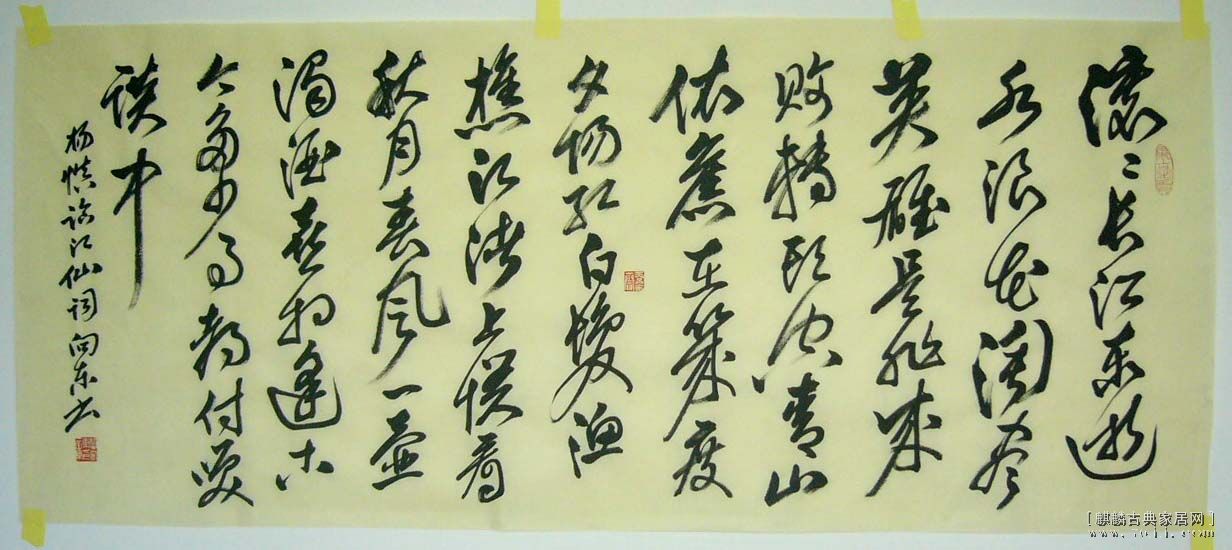 滚〻长江东逝
水浪花淘尽
英雄是非成
败转头空青山
依舊在几度
夕阳红白发渔
樵江渚上惯看
秋月春风一壶
浊酒喜相逢古
今多少事都付笑
谈中
杨慎临江仙词向东书
[麒麟古典家居网]